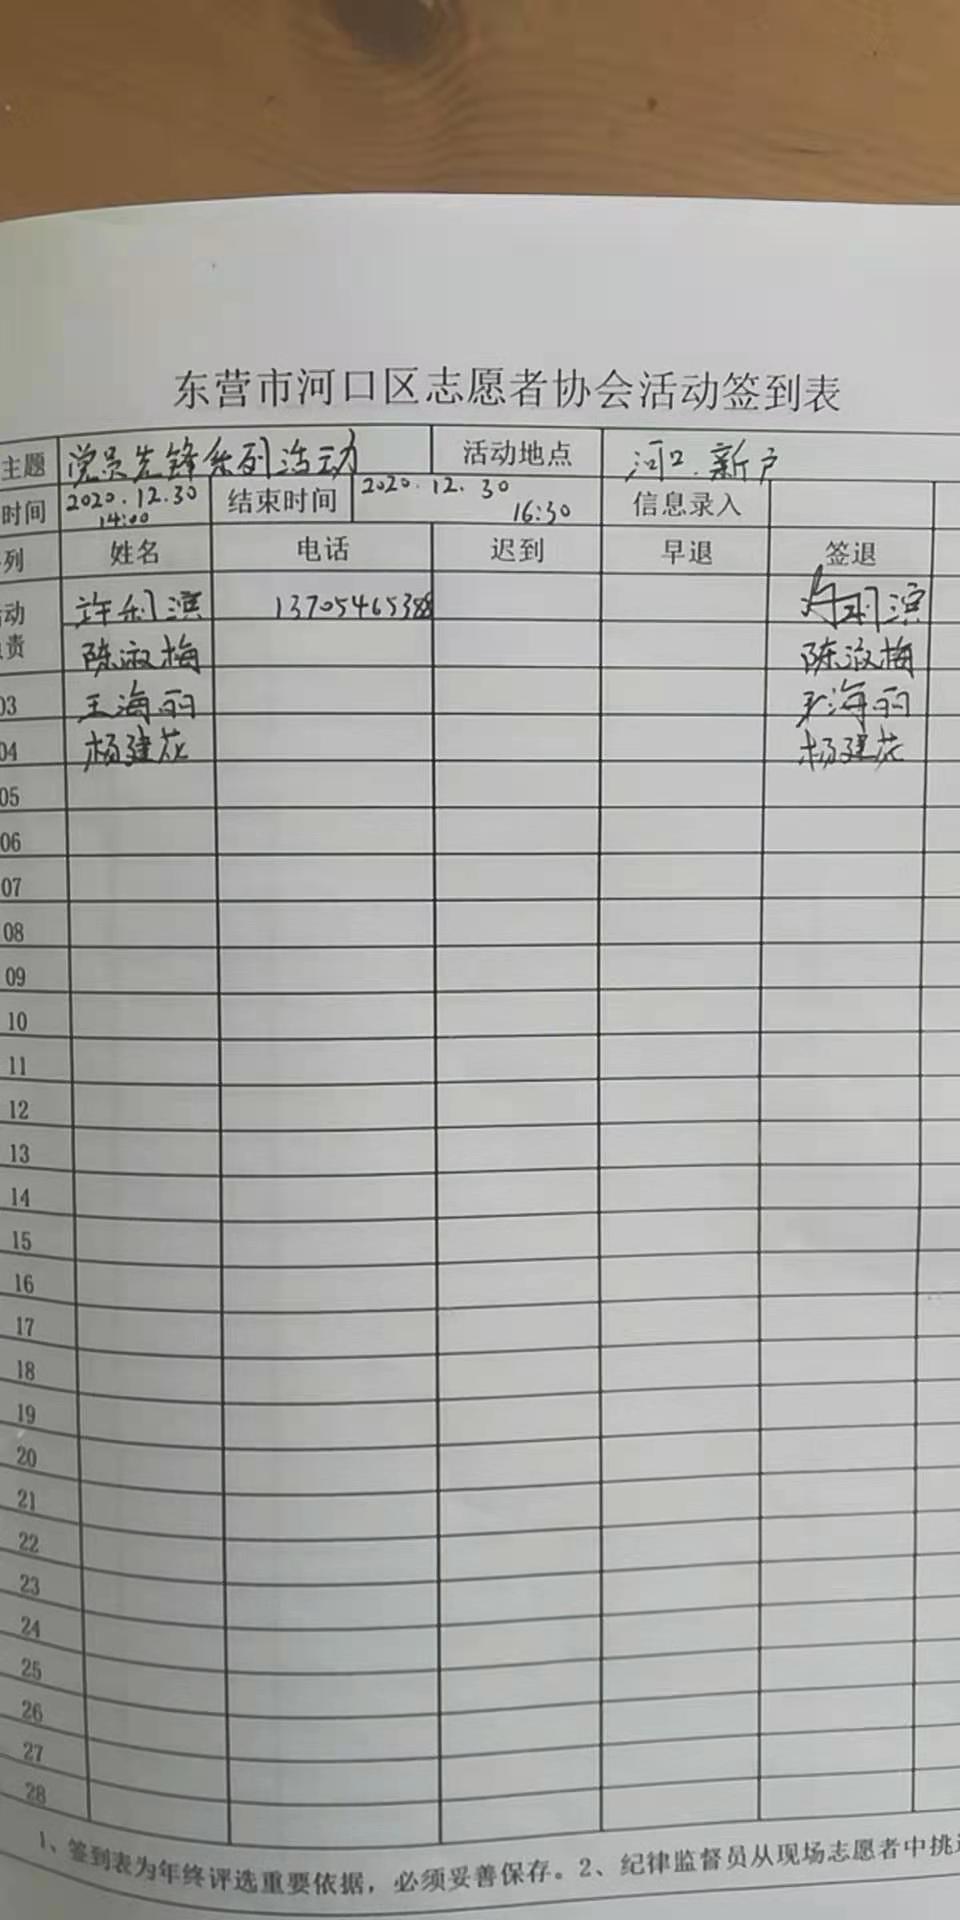 东营市河口区志愿者协会活动签到表
主题 党员先锋系列活动 活动地点 河口.新户
时间 2020.12.30 14:00 结束时间 2020.12.30 16:30 信息录入
列 姓名 电话 迟到 早退 签退
动 许利滨 利滨
责 陈淑梅 陈淑梅
03 王海丽 王海丽
04 杨建花 杨建花
05
06
07
08
09
10
11
12
13
14
15
16
17
18
19
20
21
22
23
24
25
26
27
28
1、签到表为年终评选重要依据，必须妥善保存。2、纪律监督员从现场志愿者中挑